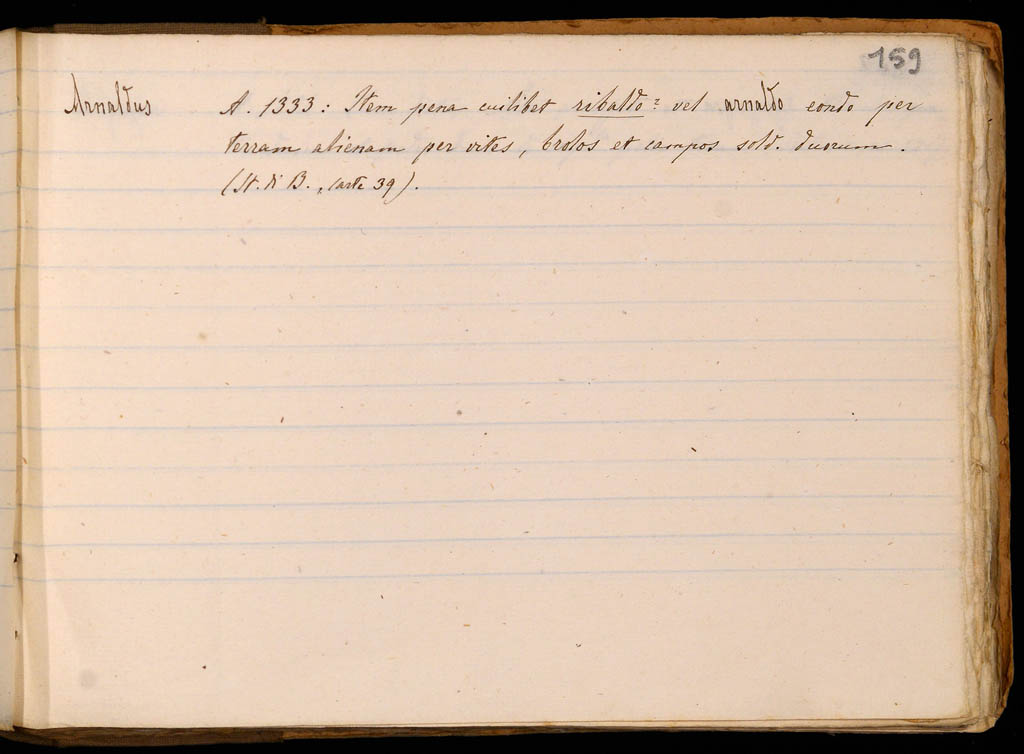 159
Arnaldus A. 1333: Item pena cuilibet ribaldo ? vel arnaldo eondo per
terram alienam per vites, brolos et campos sold. duorum.
(St. di B., carte 39).